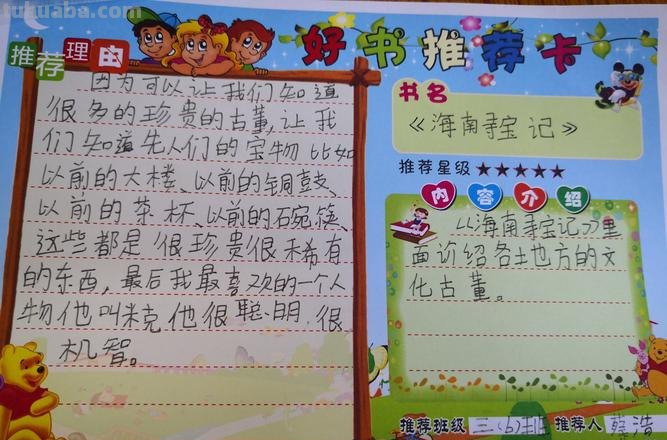 tukuaba.com
推荐理由
因为可以让我们知道
很多的珍贵的古董,让我
们知道先人们的宝物比如
以前的大楼、以前的铜鼓、
以前的茶杯、以前的石碗筷、
这些都是很珍贵很稀有
的东西,最后我最喜欢的一个人
物他叫米克他很聪明.很
机智。
好书推荐卡
书名
《海南寻宝记》
推荐星级★★★★★
内容介绍
《海南寻宝记》里
面介绍各土也方的文
化古董。
推荐班级 三(6)班 推荐人 蔡浩